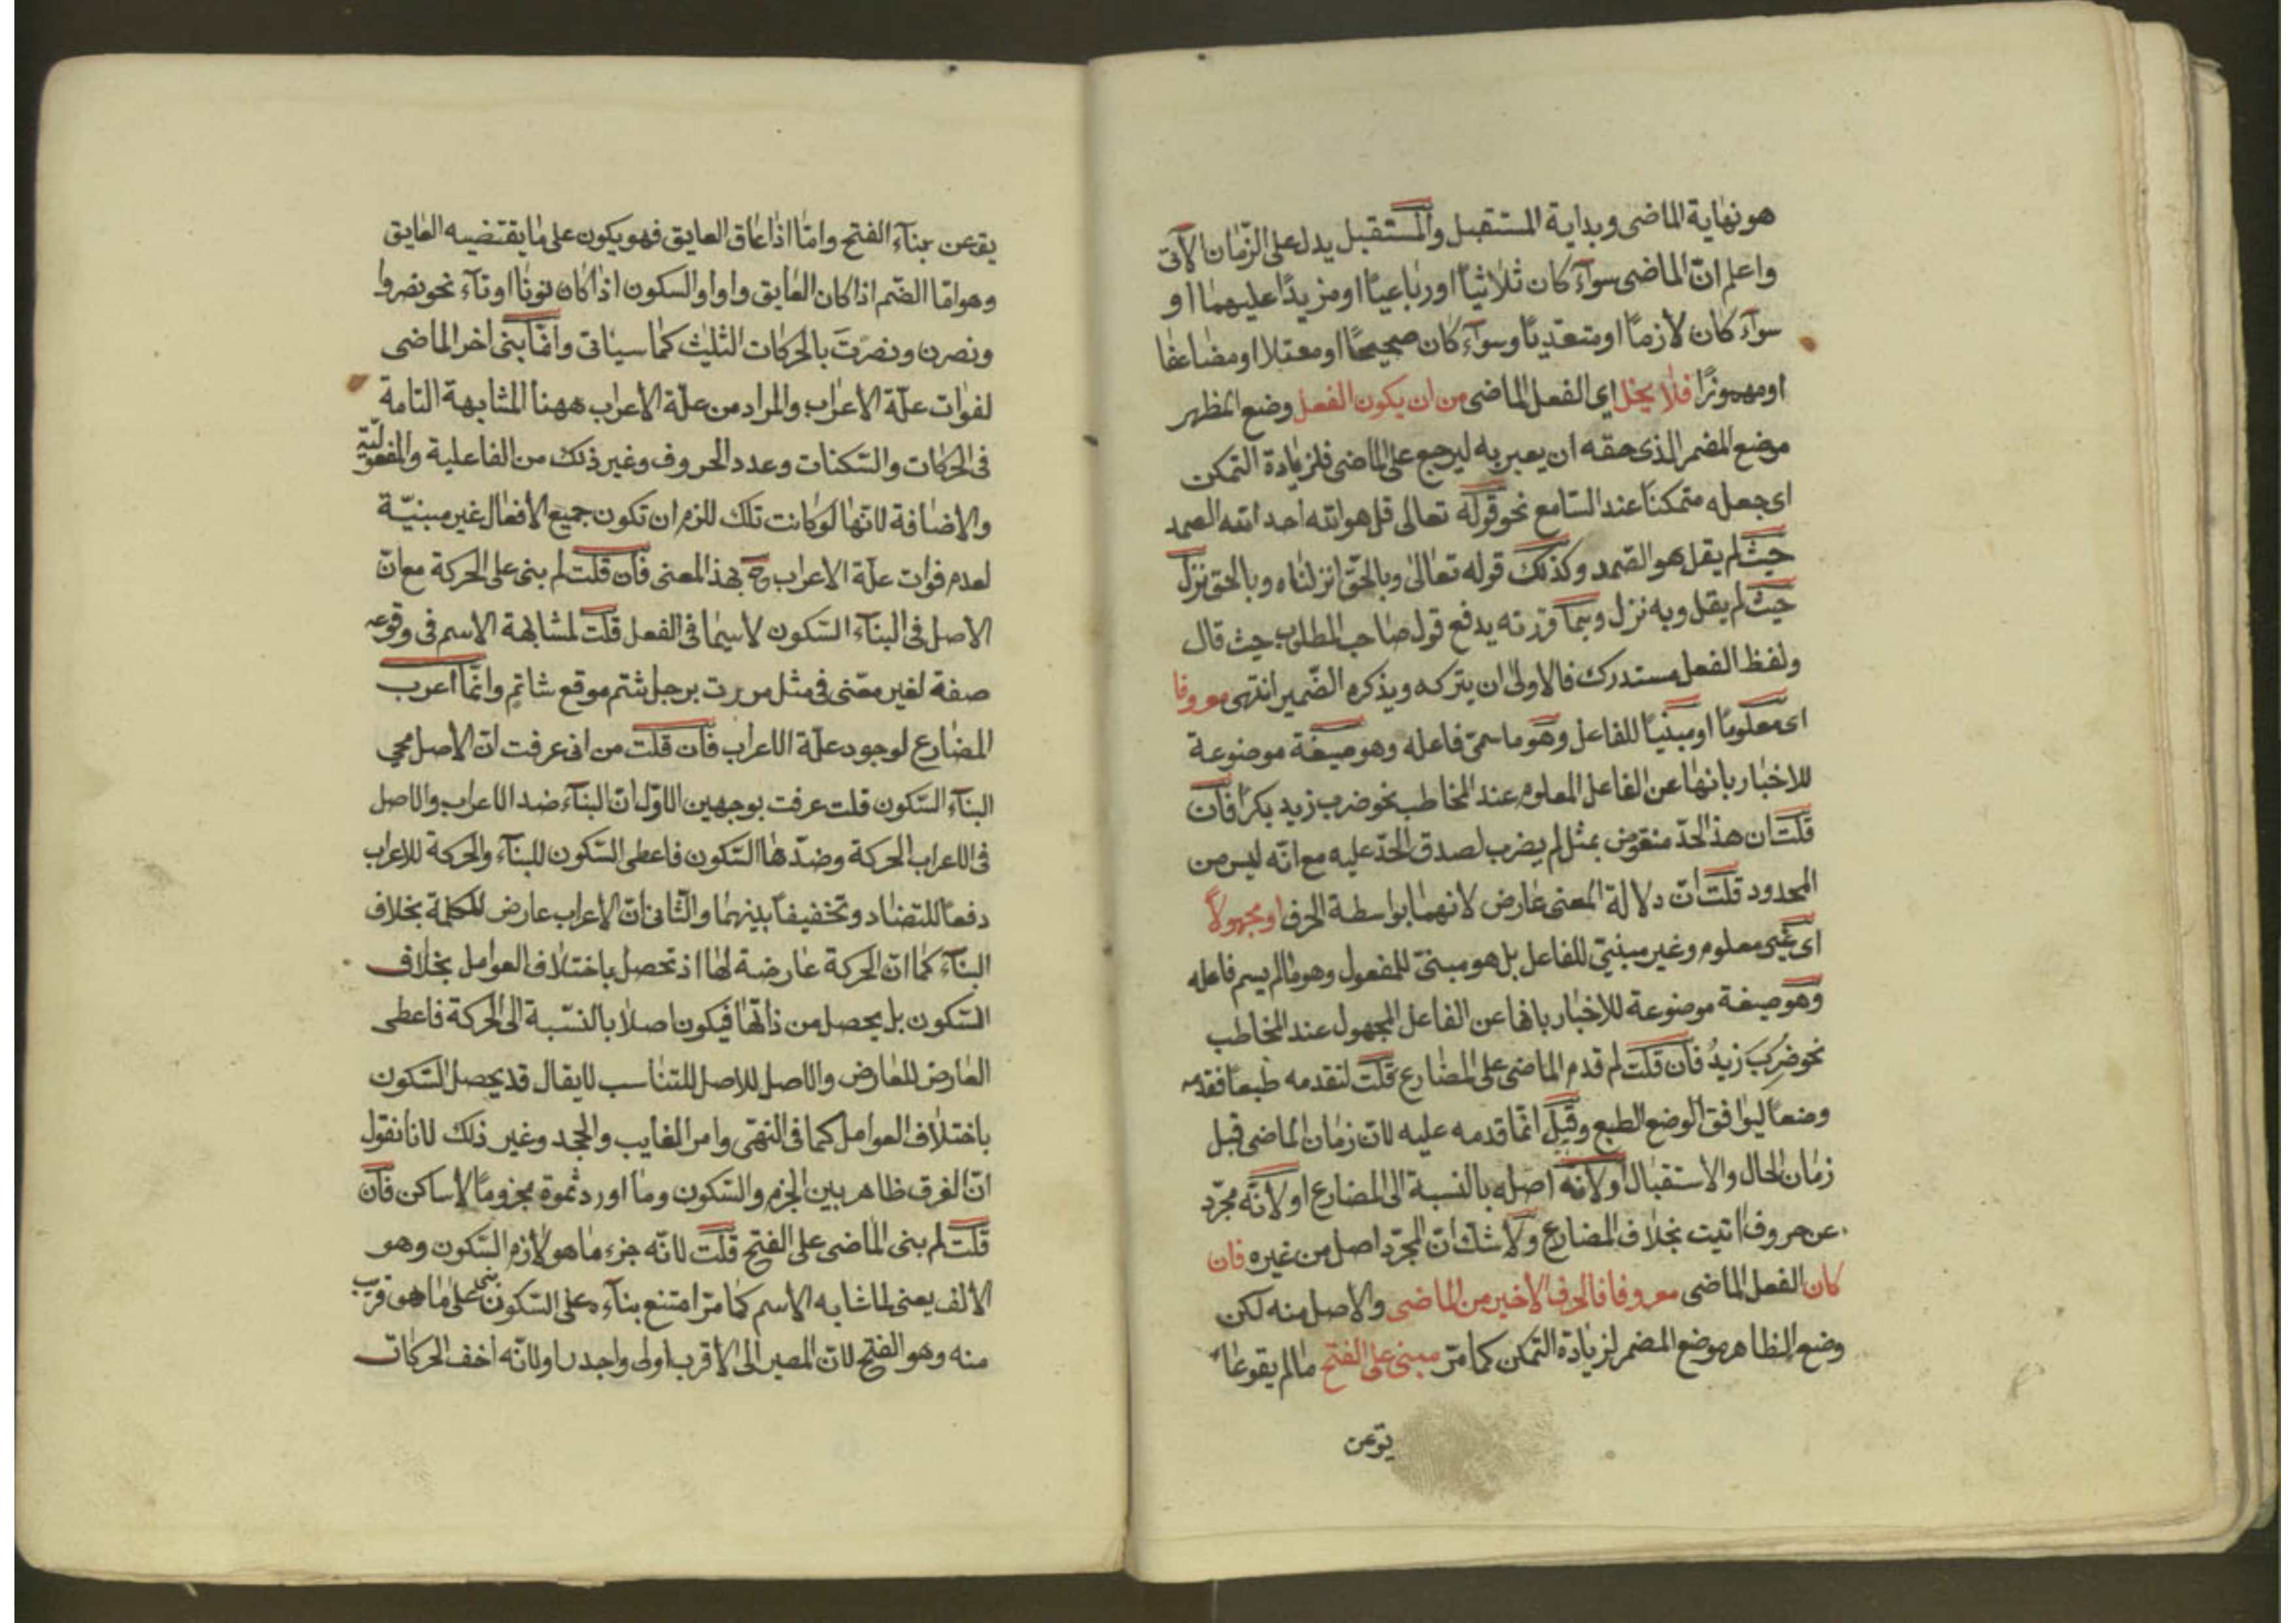 هو نهاية الماضى وبداية المستقبل والمستقبل يدل على الزمان الآتى
واعلم انّ الماضى سوآء كان ثلاثيّاً او رباعيّاً او مزيدًا عليهما او
سوآء كان لازمًا او متعدّيًا وسوآء كان صحيحًا او معتلا او مضاعفا
او مهموزًا فلا يخل اى الفعل الماضى من ان يكون الفعل وضع المظهر
موضع المضمر الذى حقه ان يعبر به ليرجع على الماضى فلزيادة التمكن
اى جعله متمكنا عند السّامع نحو قوله تعالى قل هو الله احد الله الصمد
حيث لم يقل هو الصّمد وكذلك قوله تعالى وبالحقّ انزلناه وبالحق نزل
حيث لم يقل وبه نزل وبما قررته يدفع قول صاحب المطلوب حيث قال
ولفظ الفعل مستدرك فالاولى ان يتركه ويذكره الضّمير انتهى معروفا
اى معلومًا او مبنيًا للفاعل وهو ما سمّى فاعله وهو صيغة موضوعة
للاخبار بانها عن الفاعل المعلوم عند المخاطب نحو ضرب زيد بكرًا فان
قلت ان هذ الحدّ منقوض بمثل لم يضرب لصدق الحدّ عليه مع انّه ليس من
المحدود قلت انّ دلالة المعنى عارض لانهما بواسطة الحرف او مجهولاً
اى غير معلوم وغير مبنيّ للفاعل بل هو مبنىّ للمفعول وهو ما لم يسم فاعله
وهو صيغة موضوعة للاخبار بانها عن الفاعل المجهول عند المخاطب
نحو ضُرِبَ زيدُ فان قلت لم قدم الماضى على المضارع قلت لتقدمه طبعًا فقدمه
وضعًا ليوافق الوضع الطبع وقيل انّما قدمه عليه لانّ زمان الماضى قبل
زمان الحال والاستقبال او لانّه اصله بالنسبة الى المضارع او لانّه مجرّد
عن حروف اتيت بخلاف المضارع ولا شك انّ المجرّد اصل من غيره فان
كان الفعل الماضى معروفا فالحرف الاخير من الماضى والاصل منه لكن
وضع الظاهر موضع المضمر لزيادة التمكن كما مرّ مبنى على الفتح ما لم يقو عا
يقو عن
يقو عن بنآء الفتح وامّا اذا عاق العايق فهو يكون على ما يقتضيه العايق
وهو امّا الضّم اذا كان العايق واوا او السكون اذا كان نونًا او تآء نحو نصروا
ونصرن ونصرت بالحركات الثليث كما سيأتى وانّما بنى اخر الماضى
لفوات علّة الاعراب والمراد من علّة الاعراب ههنا المشابهة التامة
فى الحركات والسّكنات وعدد الحروف وغير ذلك من الفاعلية والمفعوليّة
والاضافة لانّها لو كانت تلك للزم ان تكون جميع الافعال غير مبنيّة
لعدم فوات علّة الاعراب بهذ المعنى فان قلت لم بنى على الحركة مع انّ
الاصل فى البنآء السّكون لاسيما فى الفعل قلت لمشابهة الاسم فى وقوعه
صفة لغير معّنى فى مثل مررت برجل شتم موقع شاتم وانّما اعرب
المضارع لوجود علّة الاعراب فان قلت من انى عرفت انّ الاصل فى
البنآء السّكون قلت عرفت بوجهين الاوّل انّ البنآء ضد الاعراب والاصل
فى الاعراب الحركة وضدّها السّكون فاعطى السّكون للبنآء والحركة للاعراب
دفعًا للتضاد وتخفيفاً بينهما والثّانى انّ الاعراب عارض للكلمة بخلاف
البنآء كما انّ الحركة عارضة لها اذ تحصل باختلاف العوامل بخلاف
السّكون بل يحصل من ذاتها فيكون اصلا بالنسّبة الى الحركة فاعطى
العارض للعارض والاصل للاصل للتناسب لا يقال قد يحصل السّكون
باختلاف العوامل كما فى النهّى وامر الغايب والجحد وغير ذلك لانا نقول
انّ الفرق ظاهر بين الجزم والسّكون وما اوردتموه مجزومًا لا ساكن فان
قلت لم بنى الماضى على الفتح قلت لانّه جزء ما هو لازم السّكون وهو
الالف يعنى لما شابه الاسم كما مرّ امتنع بنآءه على السّكون بنى على ما هو قرب
منه وهو الفتح لانّ المصير الى الاقرب اولى واجدر او لانّه اخف الحركات